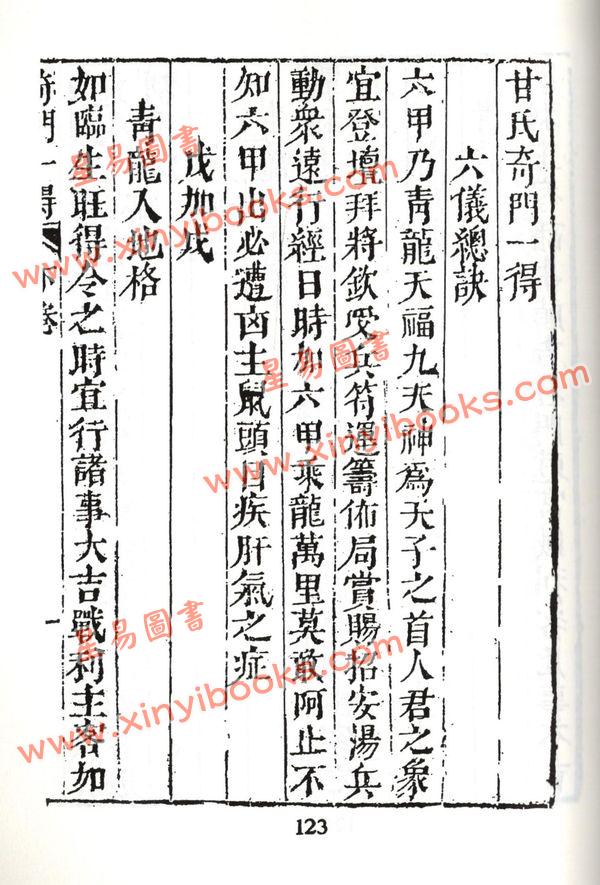 甘氏奇門一得
六儀總訣
六甲乃靑龍天福九天神爲天子之首人君之象
宜登壇拜將欽受兵符運籌佈局賞賜招安湯兵
動衆遠行經日時加六甲乘龍萬里莫敢阿止不
知六甲出必遭凶主鼠頭目疾肝氣之症
戊加戊
靑龍入地格
如臨生旺得令之時宜行諸事大吉戰利主客如
奇門一得 卷 一
123
星易圖書
www.xinyibooks.com
星易圖書
www.xinyibooks.com
星易圖書
www.xinyibooks.com